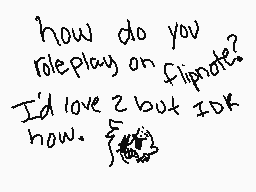 how do you
roleplay on flipnote?
I'd love 2 but IDK
how.